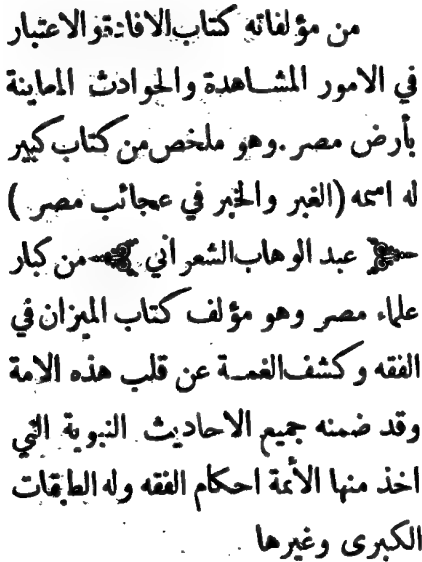 من مؤلفاته كتاب الافادة والاعتبار
في الامور المشاهدة والحوادث المعاينة
بأرض مصر. وهو ملخص من كتاب كبير
له اسمه (الغبر والخبر في عجائب مصر)
عبد الوهاب الشعراني من كبار
علماء مصر وهو مؤلف كتاب الميزان في
الفقه وكشف الغمة عن قلب هذه الامة
وقد ضمنه جميع الاحاديث النبوية التي
اخذ منها الأئمة احكام الفقه وله الطبقات
الكبرى وغيرها